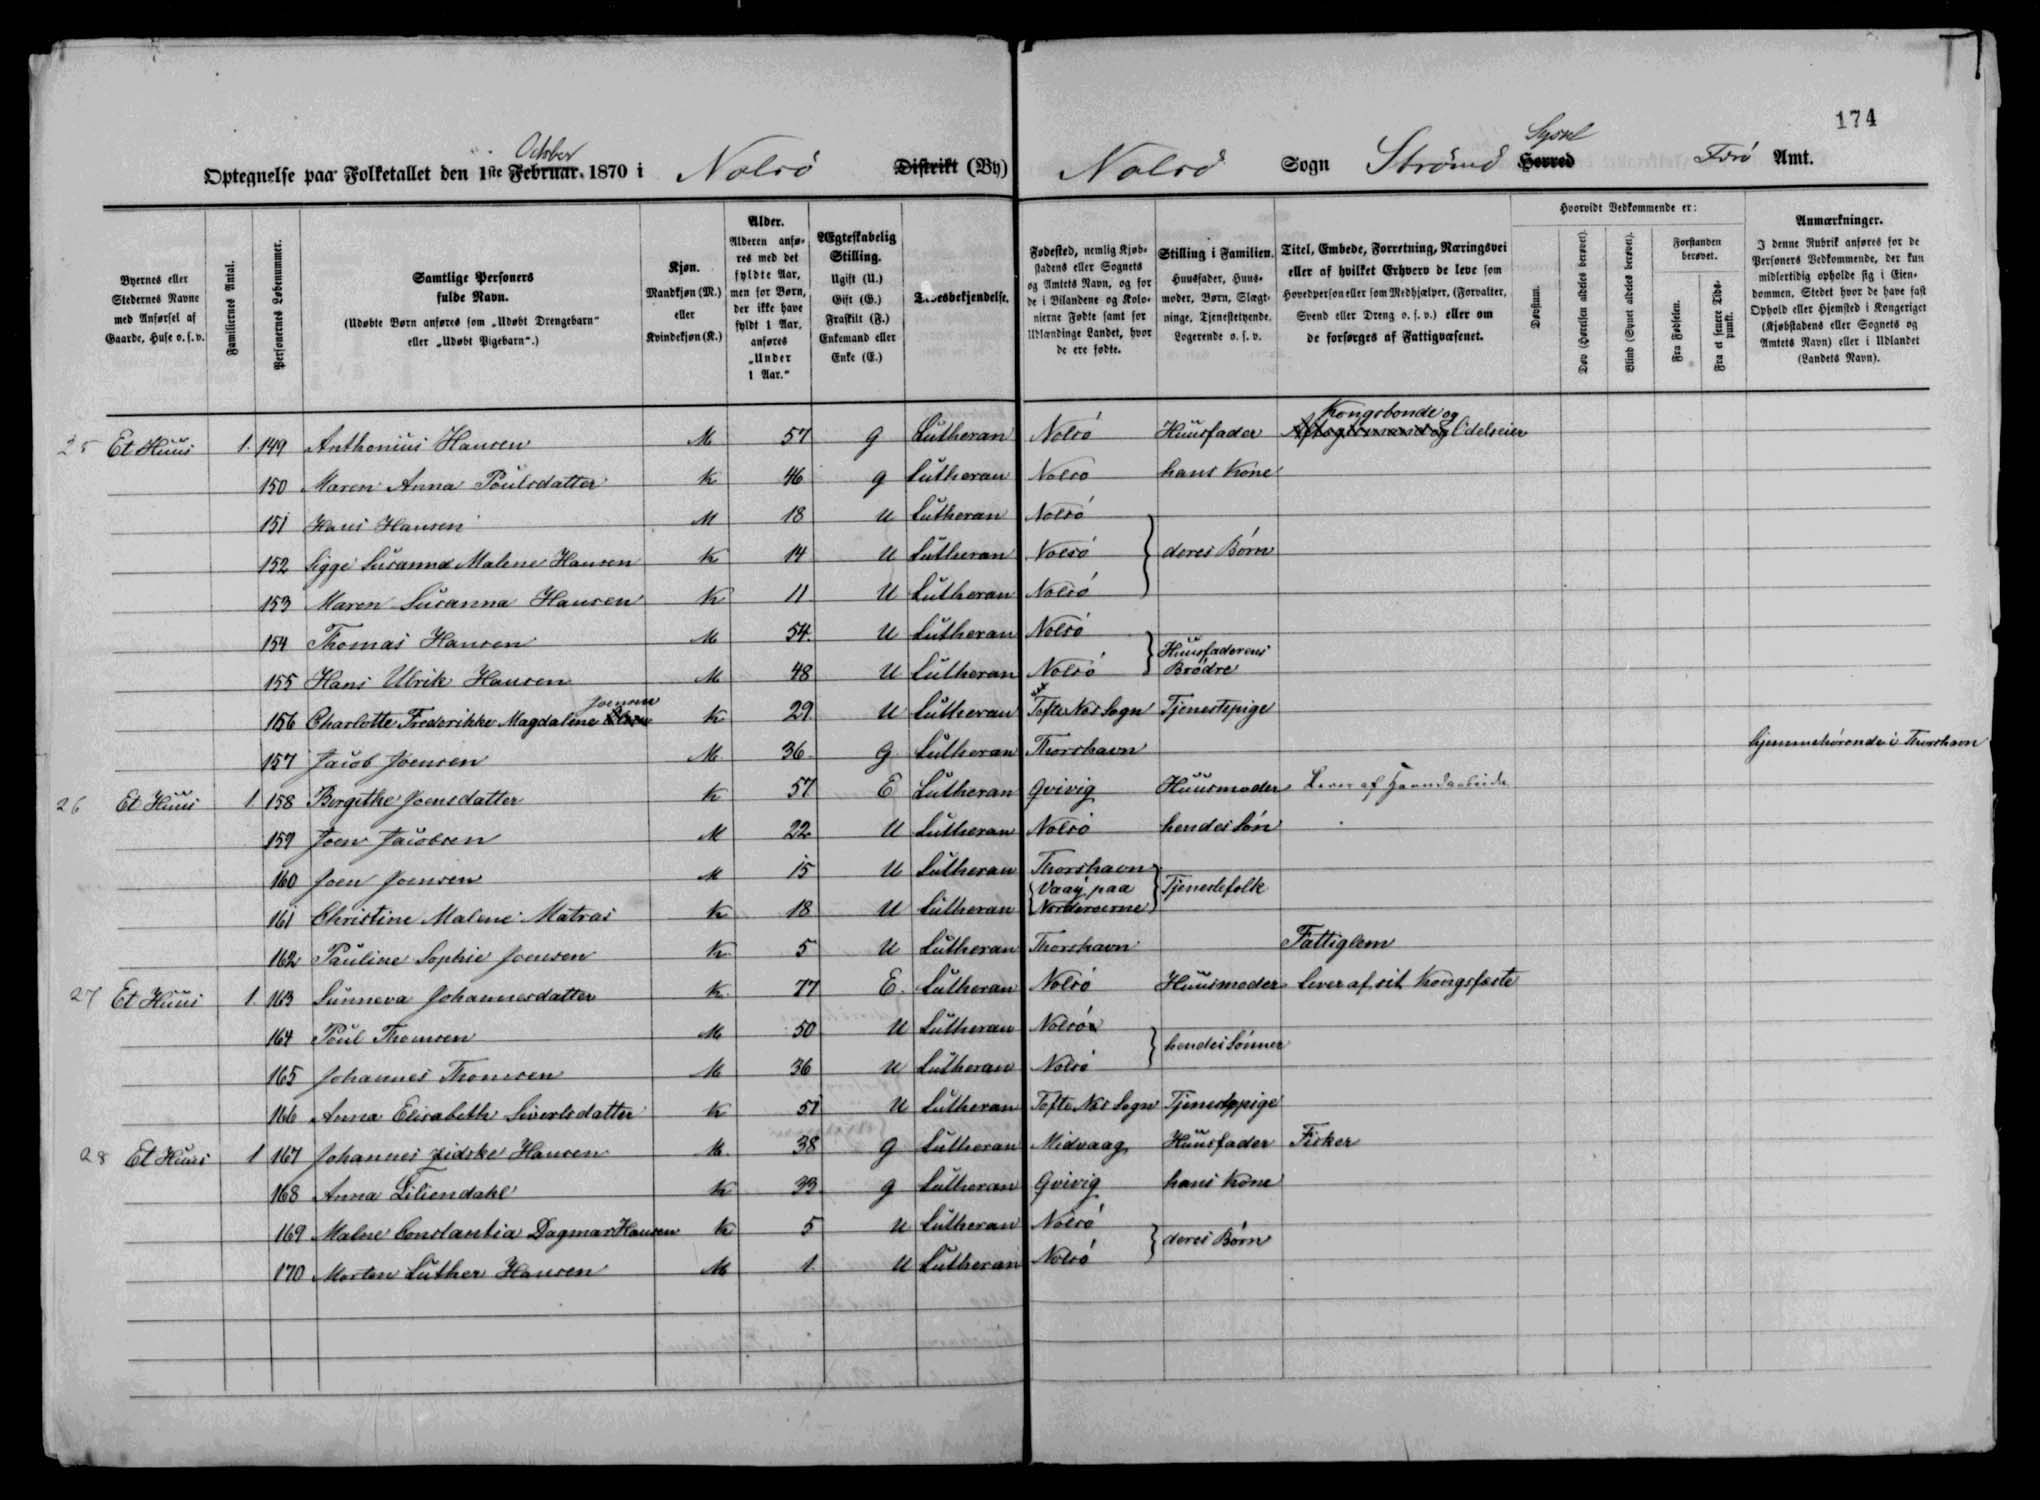 174
Optegnelse paa Folketallet den 1ste Februar October 1870 i Nolsö Distrikt (By) Nolsö Sogn Strömö Herred Syssel Færö Amt.
Byernes eller Stedernes Navne med Anførsel af Gaarde, Huse o. s. v.
Familiernes Antal.
Personernes Løbenummer.
Samtlige Personers fulde Navn.
(Udøbte Børn anføres som „Udøbt Drengebarn“ eller „Udøbt Pigebarn“.)
Kjøn. Mandkjøn (M.) eller Kvindekjøn (K.)
Alder. Alderen anføres med det fyldte Aar, men for Børn, der ikke have fyldt 1 Aar, anføres „Under 1 Aar.“
Ægteskabelig Stilling. Ugift (U.) Gift (G.) Fraskilt (F.) Enkemand eller Enke (E.)
Troesbekjendelse.
Fødested, nemlig Kjøbstadens eller Sognets og Amtets Navn, og for de i Bilandene og Kolonierne Fødte samt for Udlændinge Landet, hvor de ere fødte.
Stilling i Familien. Huusfader, Huusmoder, Børn, Slægtninge, Tjenestetyende, Logerende o. s. v.
Titel, Embede, Forretning, Næringsvei eller af hvilket Erhverv de leve som Hovedperson eller som Medhjælper, (Forvalter, Svend eller Dreng o. s. v.) eller om de forsørges af Fattigvæsenet.
Hvorvidt Vedkommende er:
Døvstum.
Døv (Hørelsen aldeles berøvet).
Blind (Synet aldeles berøvet).
Forstanden berøvet.
Fra Fødselen.
Fra et senere Tidspunkt.
Anmærkninger. I denne Rubrik anføres for de Personers Vedkommende, der kun midlertidig opholde sig i Eiendommen, Stedet hvor de have fast Ophold eller Hjemsted i Kongeriget (Kjøbstadens eller Sognets og Amtets Navn) eller i Udlandet (Landets Navn).
25 Et Huus 1. 149 Anthonius Hansen M 57 g Lutheran Nolsö Huusfader Aftægtsmand og Kongsbonde og Odelseier
150 Maren Anna Poulsdatter K 46 g Lutheran Nolsö hans Kone
151 Hans Hansen M 18 U Lutheran Nolsö
152 Sigge Susanna Malene Hansen K 14 U Lutheran Nolsö } deres Børn
153 Maren Susanna Hansen K 11 U Lutheran Nolsö
154 Thomas Hansen M 54. U Lutheran Nolsö
155 Hans Ulrik Hansen M 48 U Lutheran Nolsö } Huusfaderens Brødre
156 Charlotte Frederikke Magdalene Joensen K 29 U Lutheran Tofte Næs Sogn Tjenestepige
157 Jacob Joensen M 36 G Lutheran Thorshavn hjemmehørende i Thorshavn
26 Et Huus 1 158 Bergithe Joensdatter K 57 E Lutheran Qvivig Huusmoder Lever af Haandarbeide
159 Joen Jacobsen M 22 U Lutheran Nolsö hendes Søn
160 Joen Joensen M 15 U Lutheran Thorshavn
161 Christine Malene Matras K 18 U Lutheran { Vaag paa Norderøerne } Tjenestefolk
162 Pauline Sophie Joensen K 5 U Lutheran Thorshavn Fattiglem
27 Et Huus 1. 163 Sunneva Johannesdatter K 77 E. Lutheran Nolsö Huusmoder Lever af sit Kongsfæste
164 Poul Thomsen M 50 U Lutheran Nolsö
165 Johannes Thomsen M 36 U Lutheran Nolsö } hendes Sønner
166 Anna Elisabeth Sivertsdatter K 51 U Lutheran Tofte Næs Sogn Tjenestepige
28 Et Huus 1 167 Johannes Zidske Hansen M. 38 g Lutheran Midvaag Huusfader Fisker
168 Anna Liliendahl K 33 g Lutheran Qvivig hans Kone
169 Malene Constantia Dagmar Hansen K 5 U Lutheran Nolsö
170 Morten Luther Hansen M 1. U Lutheran Nolsö } deres Børn